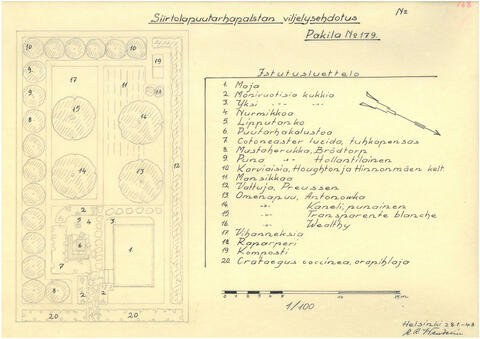 Siirtolapuutarhapalstan viljelysehdotus
No
168
Pakila No 179.
Istutusluettelo
1. Maja
2 Monivuotisia kukkia
3. Yksi -"- -"-
4 Nurmikkoa
5 Lipputanko
6 Puutarhakalustoa
7 Cotoneaster lucida, tuhkapensas
8 Mustaherukka, Brödtorp
9 Puna -"- Hollantilainen
10 Karviaisia, Houghton ja Hinnonmäen kelt.
11 Mansikkaa
12 Vattuja, Preussen
13 Omenapuu, Antonowka
14 -"- Kaneli, punainen
15 -"- Transparente blanche
16 -"- Wealthy
17 Vihanneksia
18 Raparperi
19 Komposti
20 Crataegus coccinea, orapihlaja
1/100
Helsinki 28.1-43